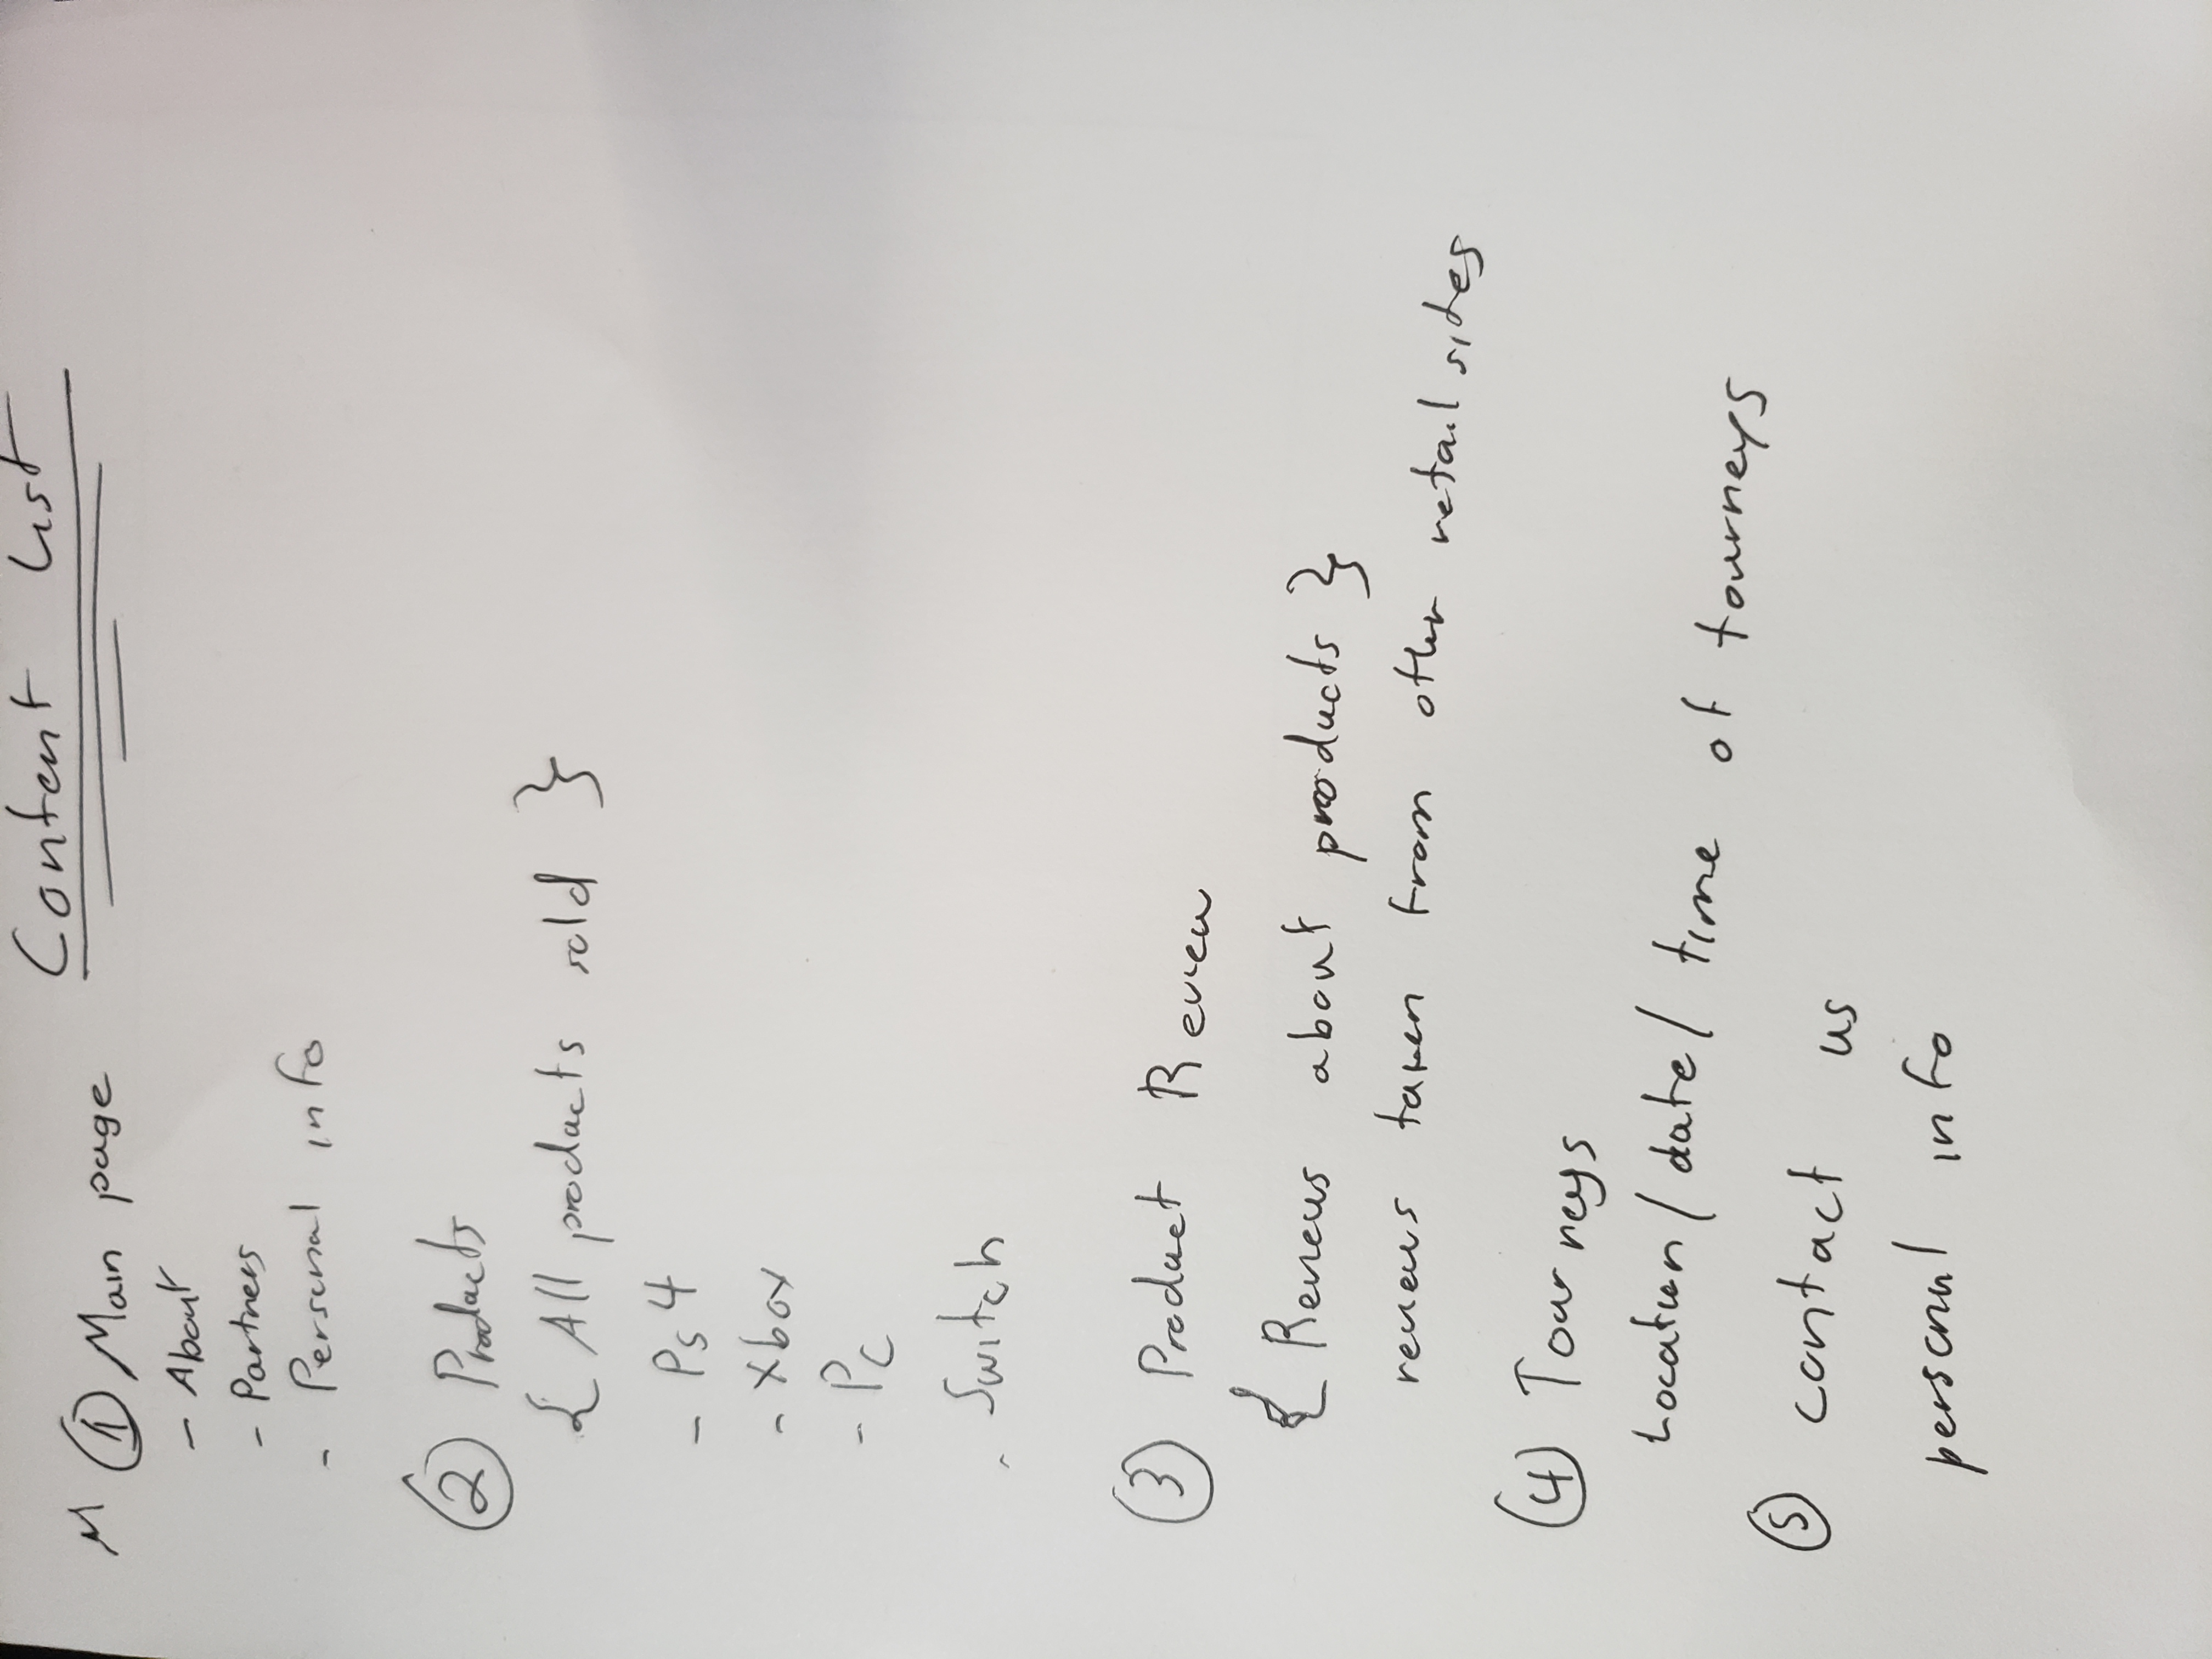 Content List
M ① Main page
- About
- Partners
- Personal info
② Products
{ All products sold }
- Ps4
- Xbox
- Pc
- Switch
③ Product Review
{ Reviews about products }
reviews taken from other retail sites
④ Tourneys
Location/date/time of tourneys
⑤ contact us
personal info